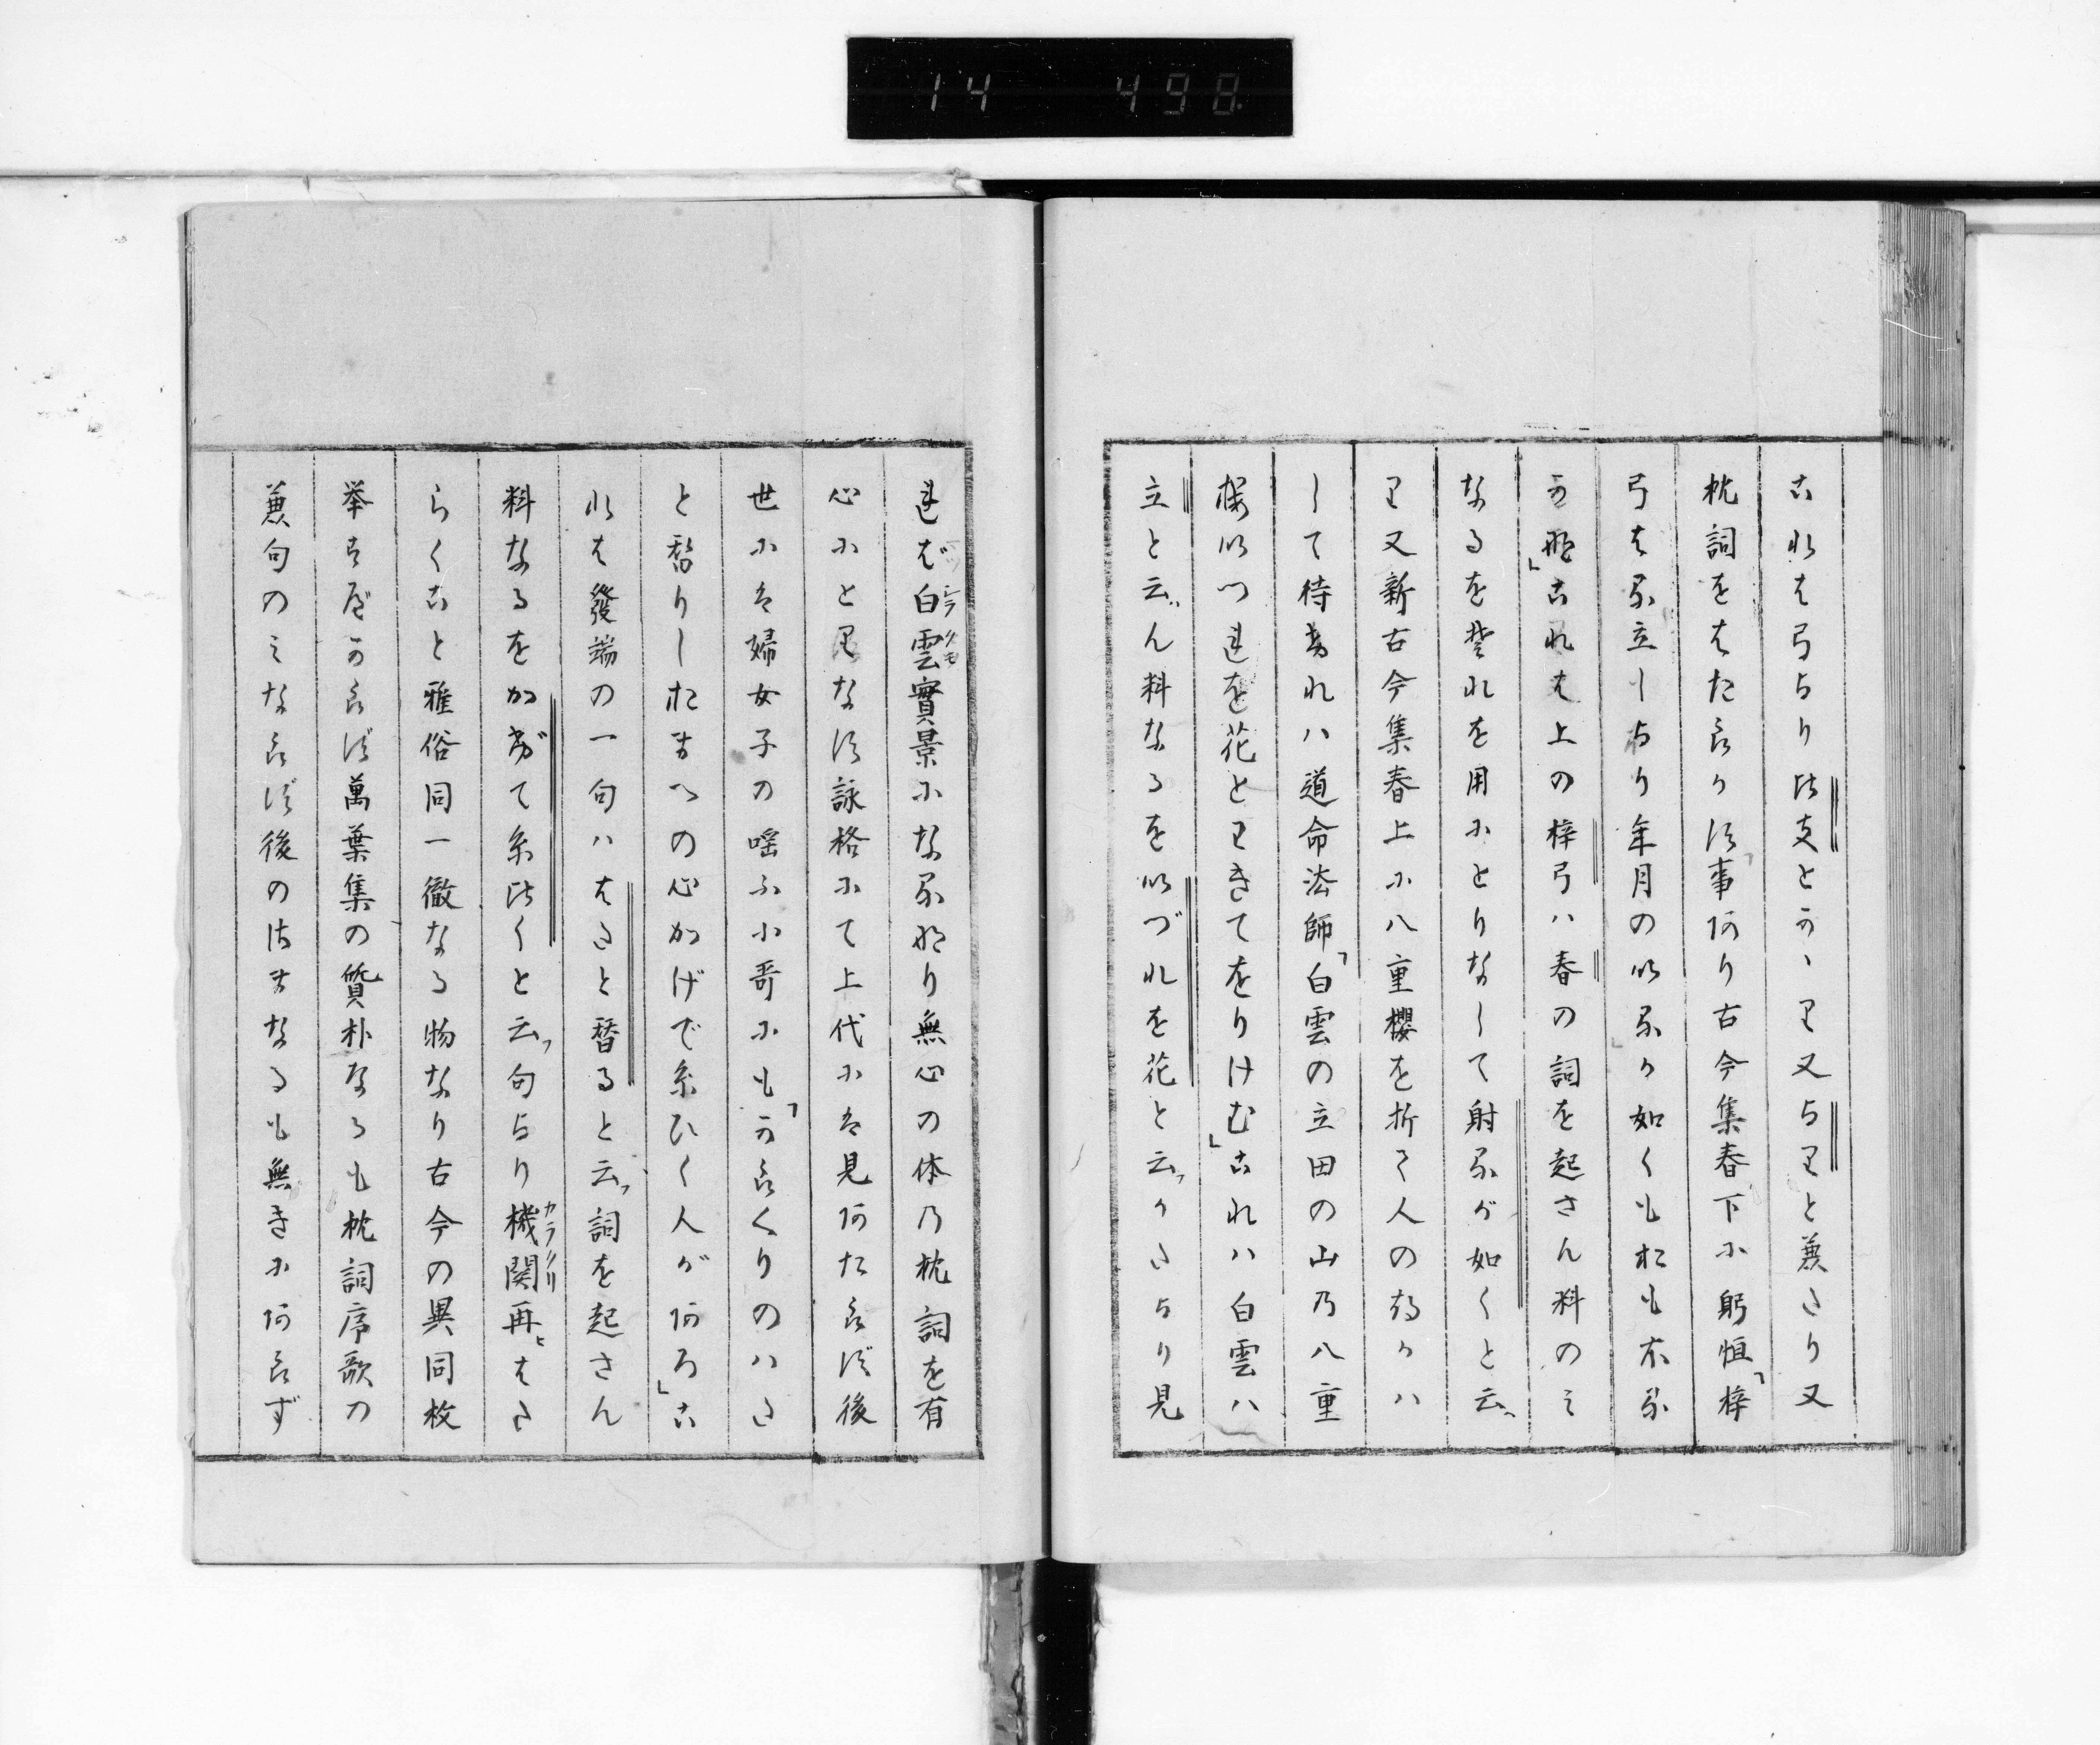 14 498
これは弓より比支とかゝり又よりと兼たり又
枕詞をはたらかす事あり古今集春下に躬恒「梓
弓はる立しより年月のいるが如くもおもほる
かな」これは上の梓弓ハ春の詞を起さん料のミ
なるを其れを用にとりなして射るが如くと云へ
り又新古今集春上に八重櫻を折て人の
して待れハ道命法師「白雲の立田の山乃八重
櫻いづれを花とわきてをりけむ」これハ白雲ハ
立と云ん料なるをいづれを花と云かたより見
れば白雲實景になるなり無心の体乃枕詞を有
シラクモ
心にとりなす詠格にて上代にも見あたらず後
世にも婦女子の唱ふ小哥にも「からくりのハた
と替りしおまへの心かげで糸ひく人があろ」こ
れは發端の一句ハはたと替ると云詞を起さん
料なるをかげて糸ひくと云句より機関再はた
カラクリ
らくこと雅俗同一徹なる物なり古今の異同枚
挙すべからず萬葉集の質朴なるも枕詞序歌の
兼句のミならず後のさまなるも無きにあらず